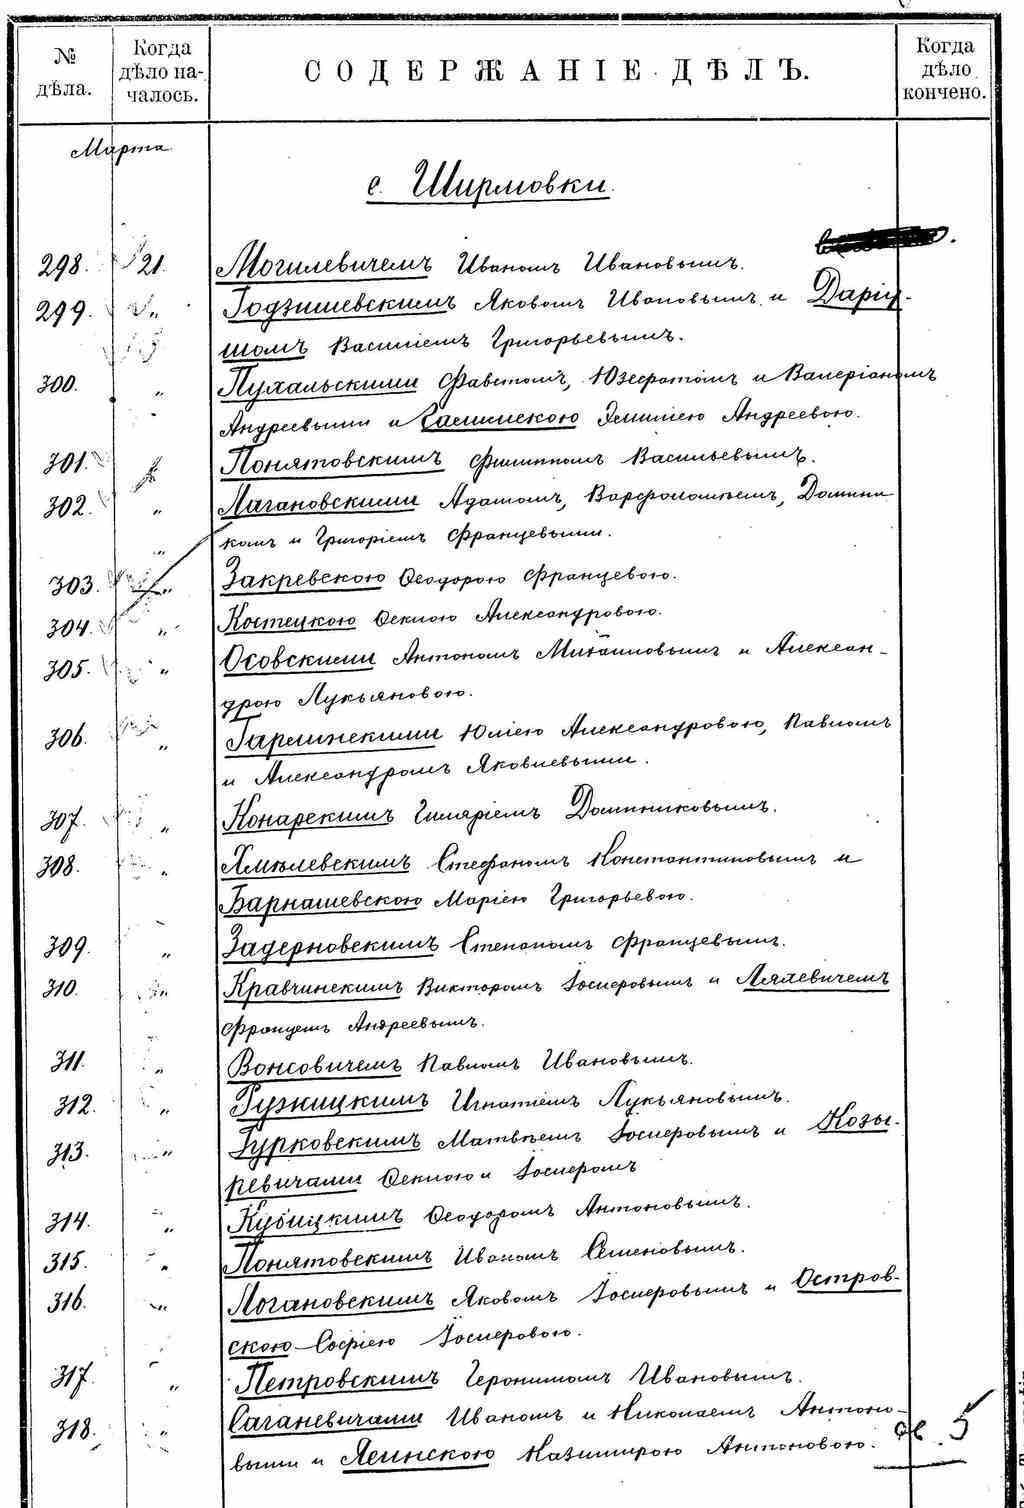 № дѣла.
Когда дѣло началось.
СОДЕРЖАНІЕ ДѢЛЪ.
Когда дѣло кончено.
Марта
с. Ширмовки.
298. 21. Могилевичемъ Иваномъ Ивановымъ.
299. „ Годзишевскимъ Яковомъ Ивановымъ и Даріу-
шомъ Василіемъ Григорьевымъ.
300. „ Пухальскими Фавстомъ, Юзефатомъ и Валеріаномъ
Андреевыми и Эмиліею Андреевою.
301. Понятовскимъ Филиппомъ Васильевымъ.
302. „ Лагановскими Адамомъ, Варфоломѣемъ, Домини
комъ и Григоріемъ Францевыми.
303. „ Закревскою Ѳеодорою Францевою.
304. „ Костецкою Ѳеклою Александровою.
305. „ Осовскими Антономъ Михайловымъ и Алексан-
дрою Лукьяновою.
306. „ Юліею Александровою, Павломъ
и Александромъ Яковлевыми.
307. „ Конарскимъ Гиляріемъ Доминиковымъ.
308. „ Хмѣлевскимъ Стефаномъ Константиновымъ и
Барнашевскою Маріею Григорьевою.
309. „ Задерновскимъ Степаномъ Францевымъ.
310. „ Кравчинскимъ Викторомъ Іосифовымъ и Ляхевичемъ
Францемъ Андреевымъ.
311. „ Вонсовичемъ Павломъ Ивановымъ.
312. „ Ружицкимъ Игнатіемъ Лукьяновымъ.
313. „ Гурковскимъ Матвѣемъ Іосифовымъ и Козы-
ревичами Ѳеклою и Іосифомъ
314. „ Кубицкимъ Ѳеодоромъ Антоновымъ.
315. „ Понятовскимъ Иваномъ Семеновымъ.
316. „ Логановскимъ Яковомъ Іосифовымъ и Остров-
скою Софіею Іосифовою.
317. „ Петровскимъ Геронимомъ Ивановымъ.
318. Саганевичами Иваномъ и Николаемъ Антоно-
выми и Ясинскою Казимирою Антоновою.
5